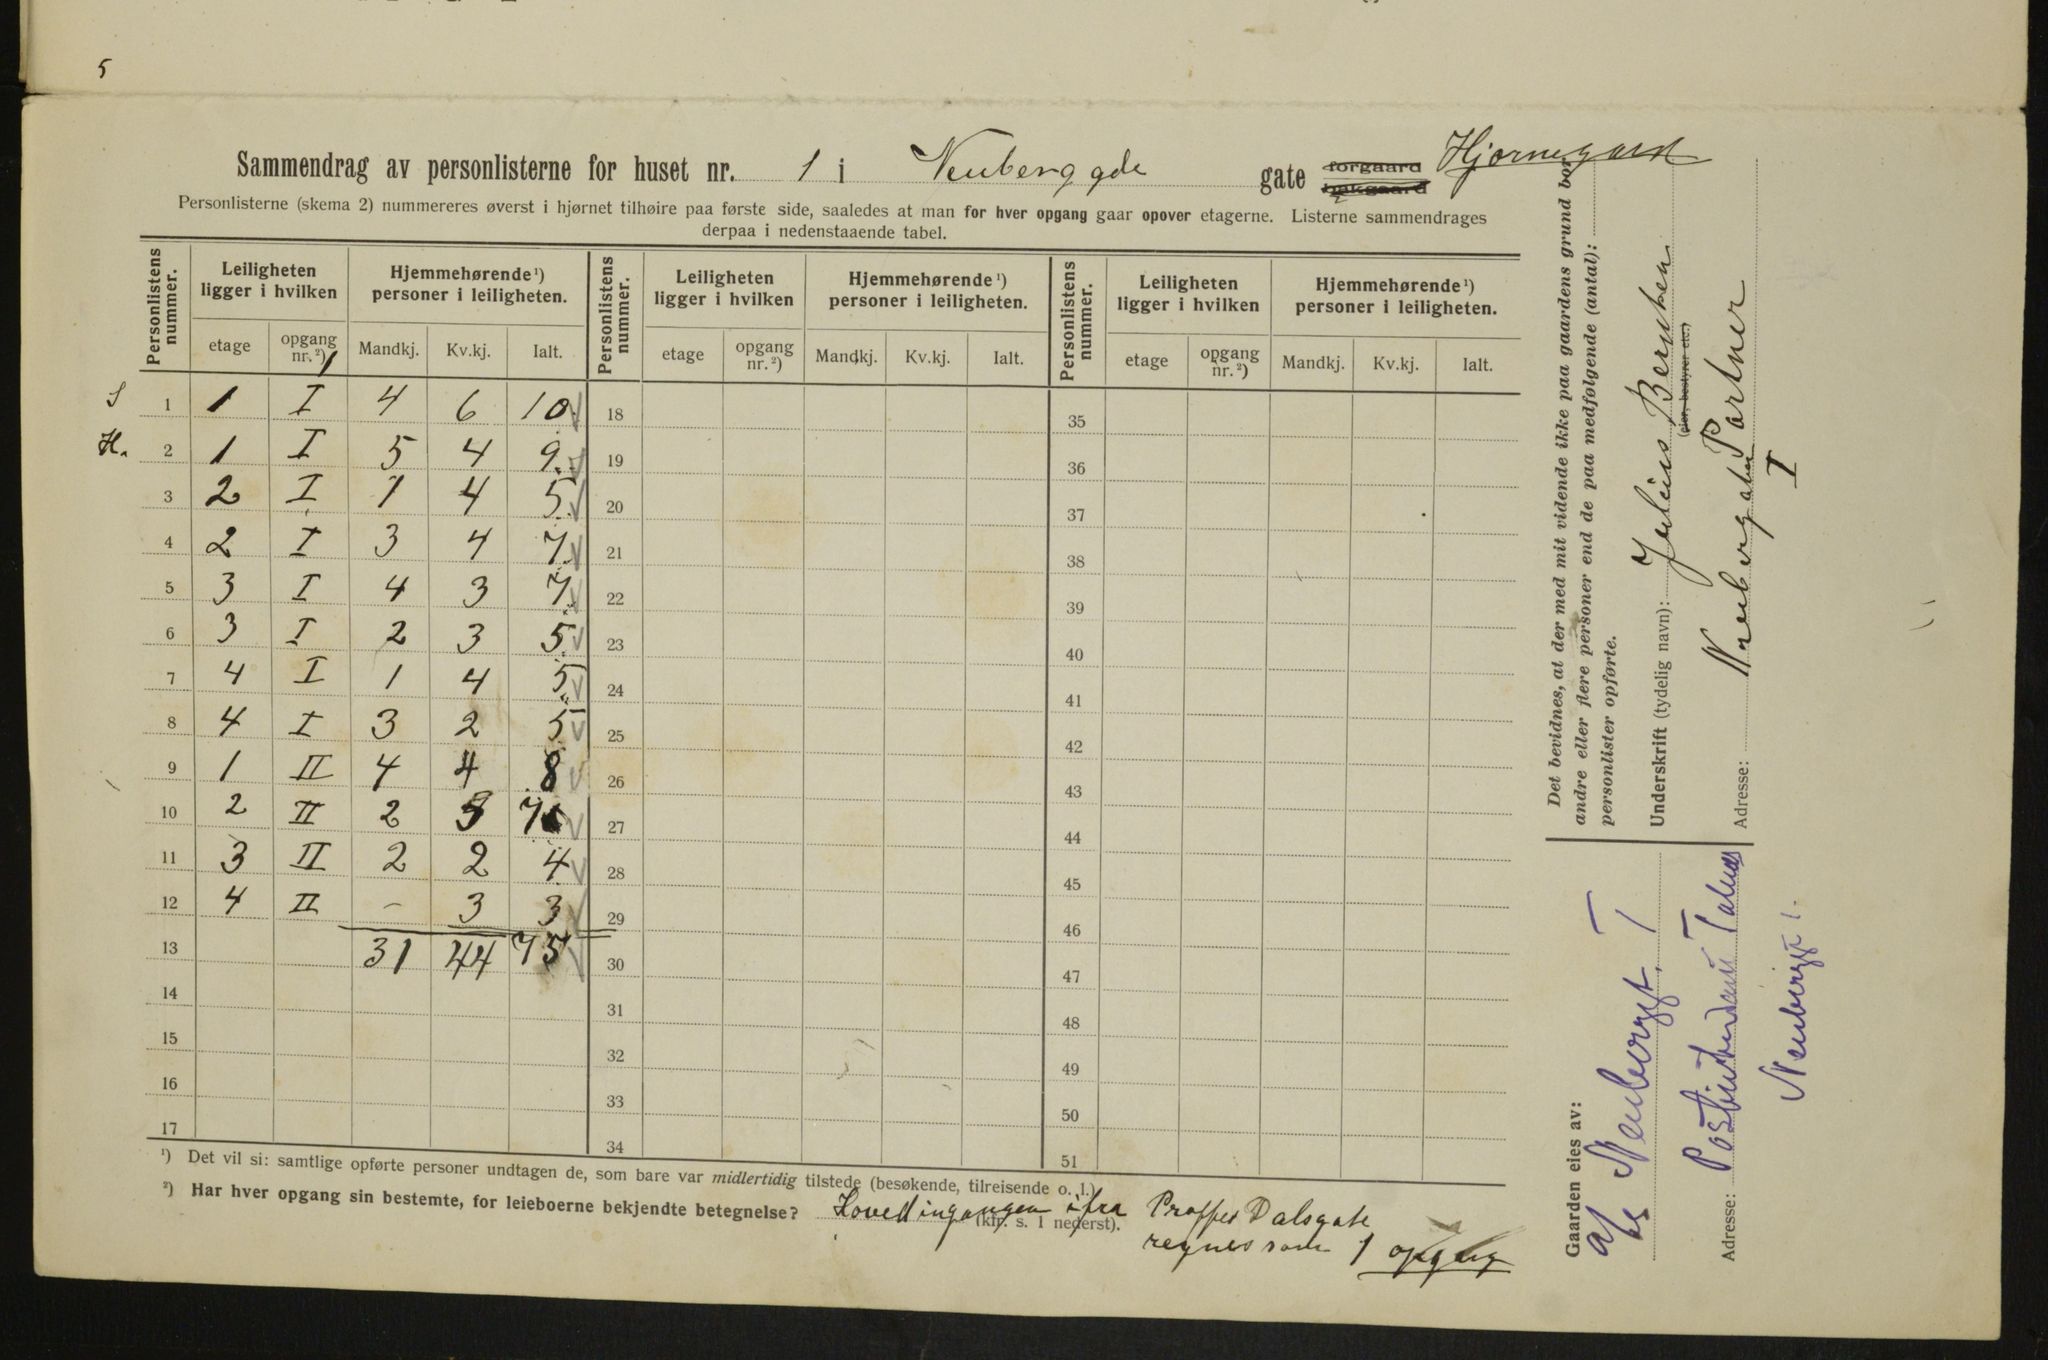 5
Sammendrag av personlisterne for huset nr. 1 i Neuberggde gate forgaard bakgaard Hjørnegaard
Personlisterne (skema 2) nummereres øverst i hjørnet tilhøire paa første side, saaledes at man for hver opgang gaar opover etagerne. Listerne sammendrages
derpaa i nedenstaaende tabel.
Personlistens nummer. Leiligheten ligger i hvilken Hjemmehørende¹) personer i leiligheten. Personlistens nummer. Leiligheten ligger i hvilken Hjemmehørende¹) personer i leiligheten. Personlistens nummer. Leiligheten ligger i hvilken Hjemmehørende¹) personer i leiligheten.
etage opgang nr.²) Mandkj. Kv.kj. Ialt. etage opgang nr.²) Mandkj. Kv.kj. Ialt. etage opgang nr.²) Mandkj. Kv.kj. Ialt.
1 1 I 4 6 10 18 35
H. 2 1 I 5 4 9. 19 36
3 2 I 1 4 5 20 37
4 2 I 3 4 7 21 38
5 3 I 4 3 7 22 39
6 3 I 2 3 5 23 40
7 4 I 1 4 5 24 41
8 4 I 3 2 5 25 42
9 1 II 4 4 8 26 43
10 2 II 2 5 7 27 44
11 3 II 2 2 4 28 45
12 4 II - 3 3 29 46
13 31 44 75 30 47
14 31 48
15 32 49
16 33 50
17 34 51
¹) Det vil si: samtlige opførte personer undtagen de, som bare var midlertidig tilstede (besøkende, tilreisende o. l.)
²) Har hver opgang sin bestemte, for leieboerne bekjendte betegnelse? Hovedingangen ifra Proffes Dalsgate
(kfr. s. 1 nederst).
regnes som 1 opgang
Det bevidnes, at der med mit vidende ikke paa gaardens grund bor
andre eller flere personer end de paa medfølgende (antal):
personlister opførte.
Underskrift (tydelig navn): Julius Berntsen
(eier, bestyrer etc.)
Portner
Adresse: Neuberggaten
I
Gaarden eies av:
A/S Neubergt. I
Adresse:
Neubergt 1.